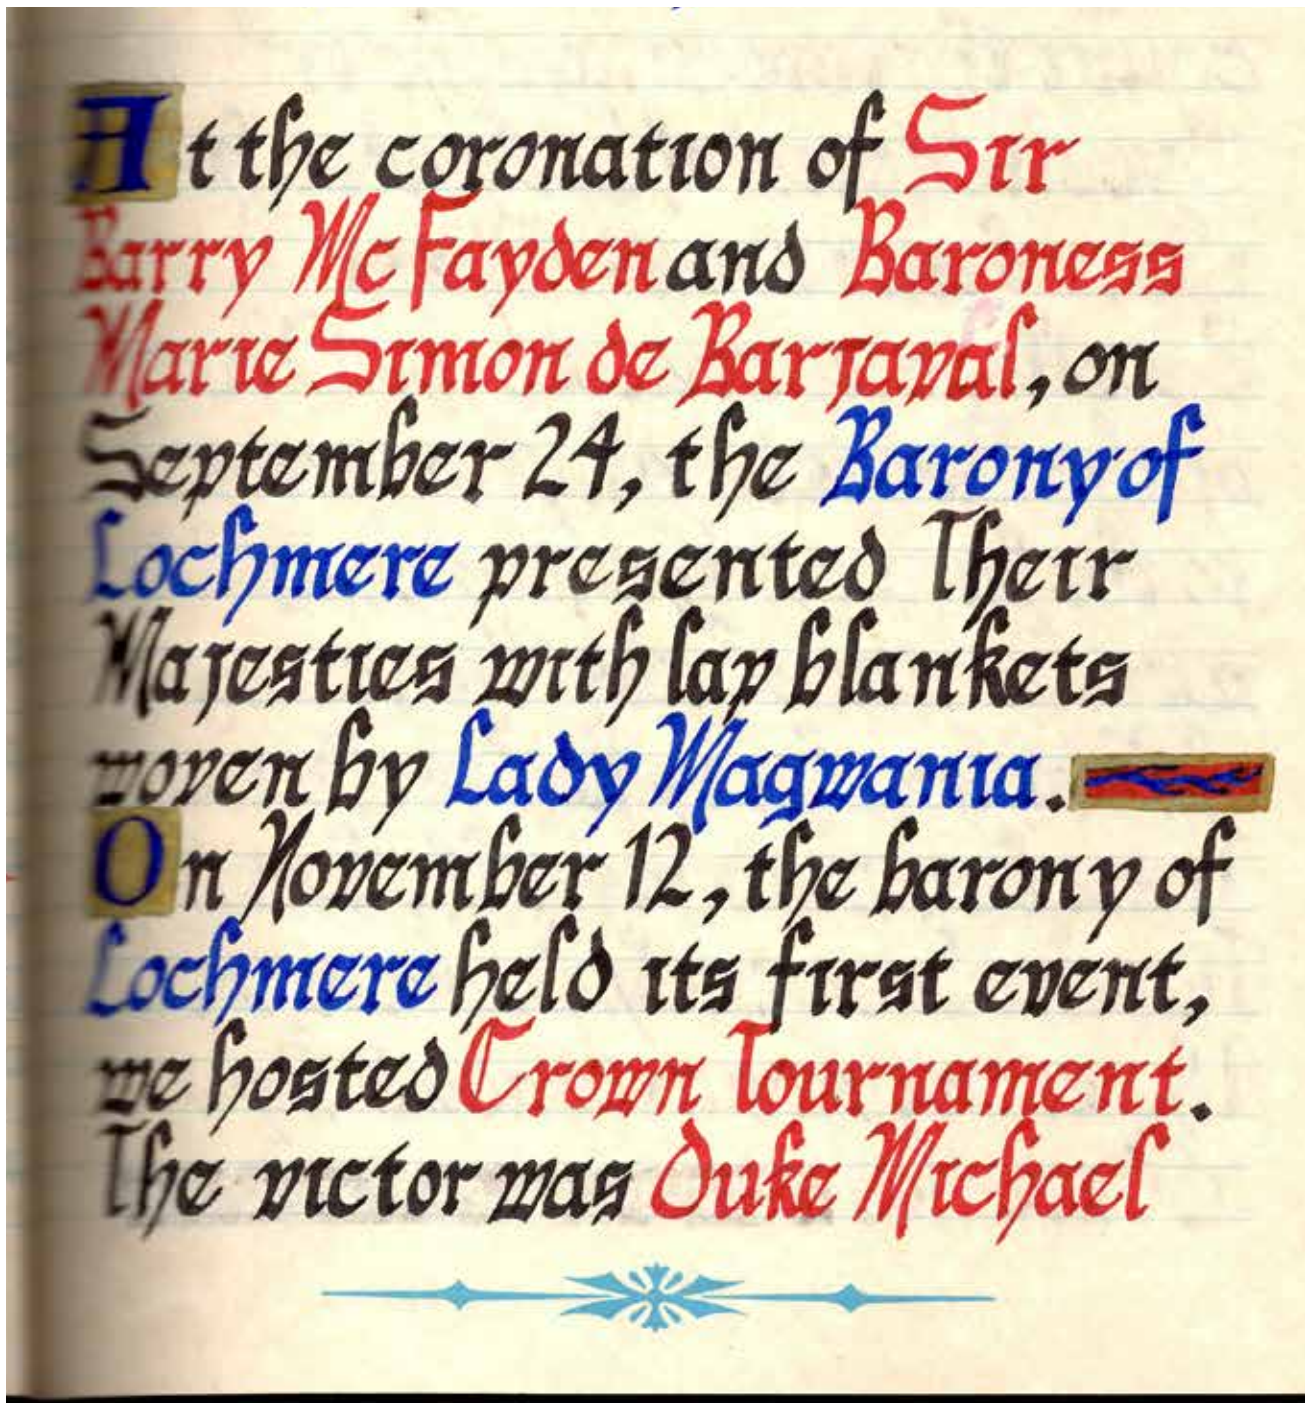 At the coronation of Sir
Barry McFayden and Baroness
Marie Simon de Barjaval, on
September 24, the Barony of
Lochmere presented Their
Majesties with lap blankets
woven by Lady Magwania.
On November 12, the barony of
Lochmere held its first event,
we hosted Crown Tournament.
The victor was Duke Michael